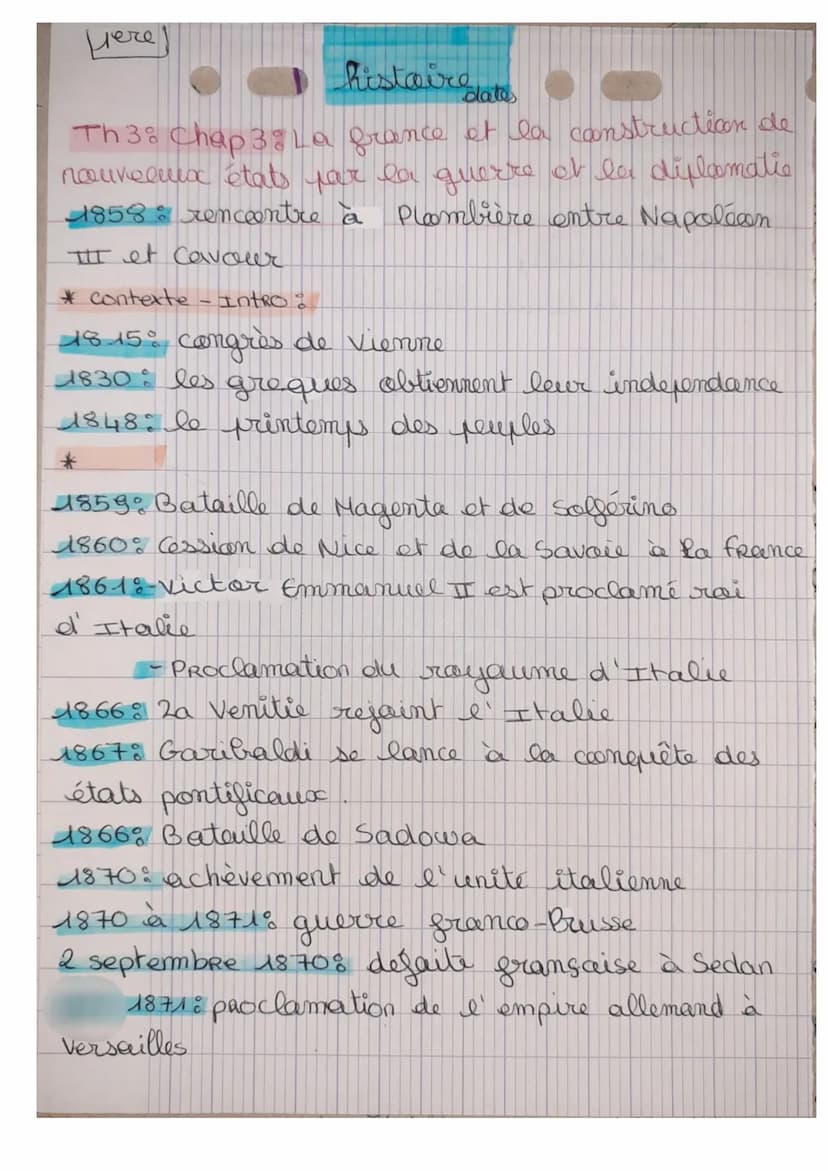 1ere
histoire
dates
Th3: Chap3: La france et la construction de
nouveaux états par la guerre et la diplomatie
1858: rencontre à Plombière entre Napoléon
III et Cavour
* contexte - INTRO:
1815: congrès de Vienne
1830: les greques obtiennent leur independance
1848: le printemps des peuples
*
1859: Bataille de Magenta et de Solférino
1860: Cession de Nice et de la Savoie à la france
1861:-Victor Emmanuel II est proclamé roi
d'Italie
- PRoclamation du royaume d'Italie
1866: la Venitie rejoint l'Italie
1867: Garibaldi se lance à la conquête des
états pontificaux.
1866: Bataille de Sadowa
1870: achèvement de l'unité italienne
1870 à 1871: guerre franco-Prusse
2 septembre 1870: defaite française à Sedan
1871: proclamation de l'empire allemand à
Versailles